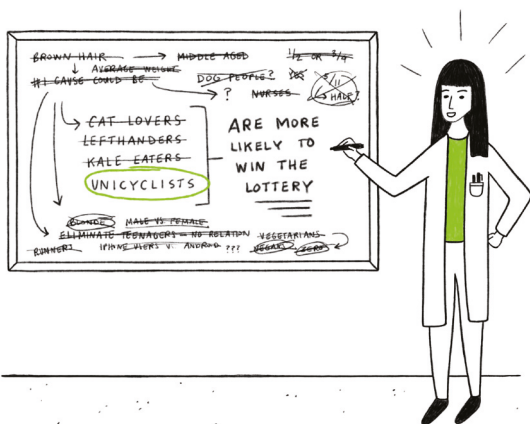 BROWN HAIR → MIDDLE AGED 1/2 OR 3/4
AVERAGE WEIGHT
#1 CAUSE COULD BE
DOG PEOPLE? YES 5/11
? NURSES → HALF?
CAT LOVERS
LEFTHANDERS
KALE EATERS
UNICYCLISTS
ARE MORE
LIKELY TO
WIN THE
LOTTERY
BLONDE MALE VS FEMALE
ELIMINATE TEENAGERS - NO RELATION VEGETARIANS
RUNNERS IPHONE USERS V. ANDROID ??? VEGANS ZERO